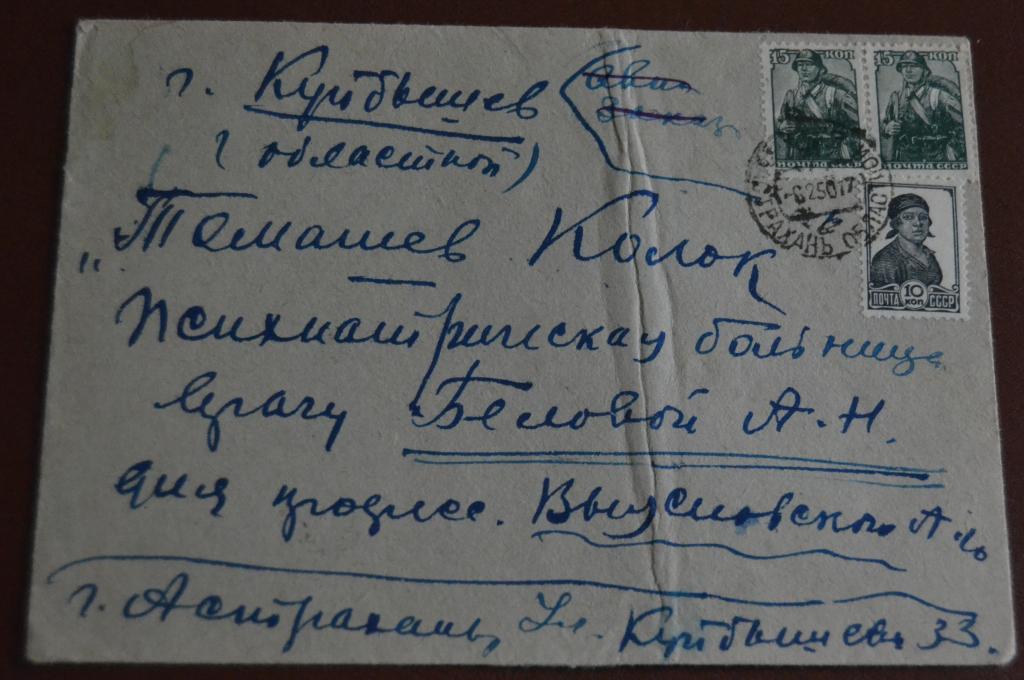 г. Куйбышев
(областной)
15 КОП
ПОЧТА СССР
15 КОП
ПОЧТА СССР
-6 2 50 17
АСТРАХАНЬ ОБЛАСТ
ПОЧТА 10 КОП СССР
"Томашев Колок
Психиатрическая больница
врачу Беловой А.Н.
для професс.
г. Астрахань, Ул. Куйбышева 33.